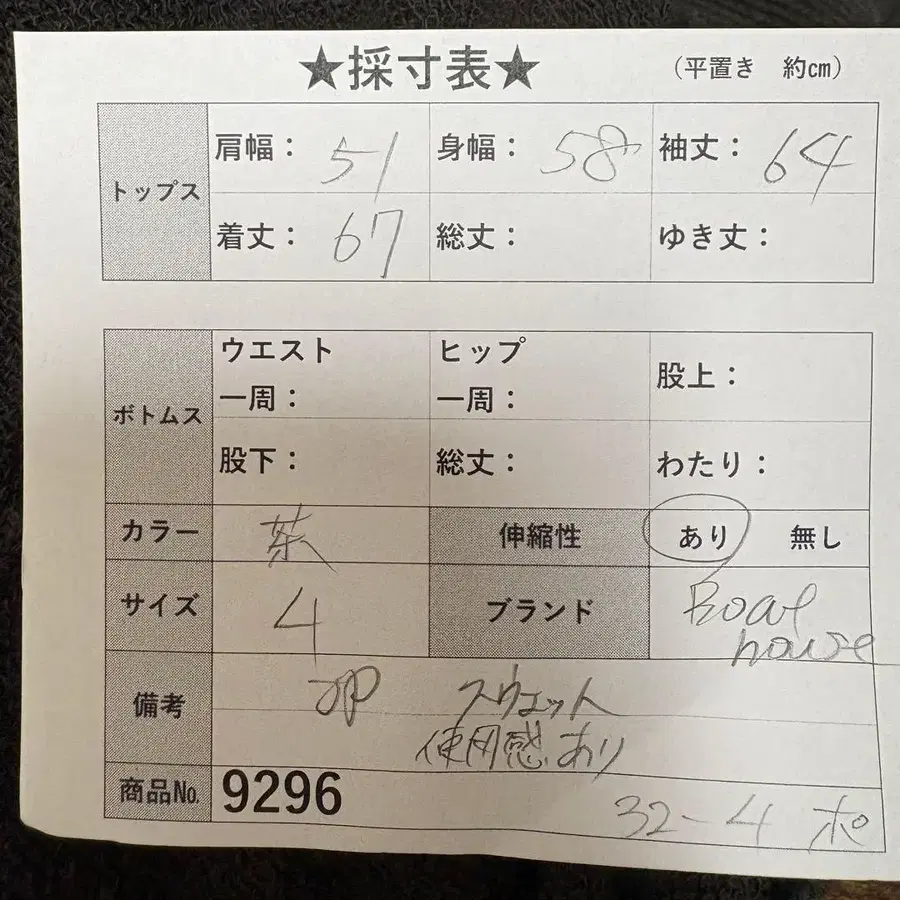 ★採寸表★ （平置き 約㎝）
トップス
肩幅： 51 身幅： 58 袖丈： 64
着丈： 67 総丈： ゆき丈：
ボトムス
ウエスト
一周：
ヒップ
一周：
股上：
股下： 総丈： わたり：
カラー 茶 伸縮性 あり 無し
サイズ 4 ブランド Boat
house
備考 スウェット
使用感あり
商品No. 9296 32-4 ポ